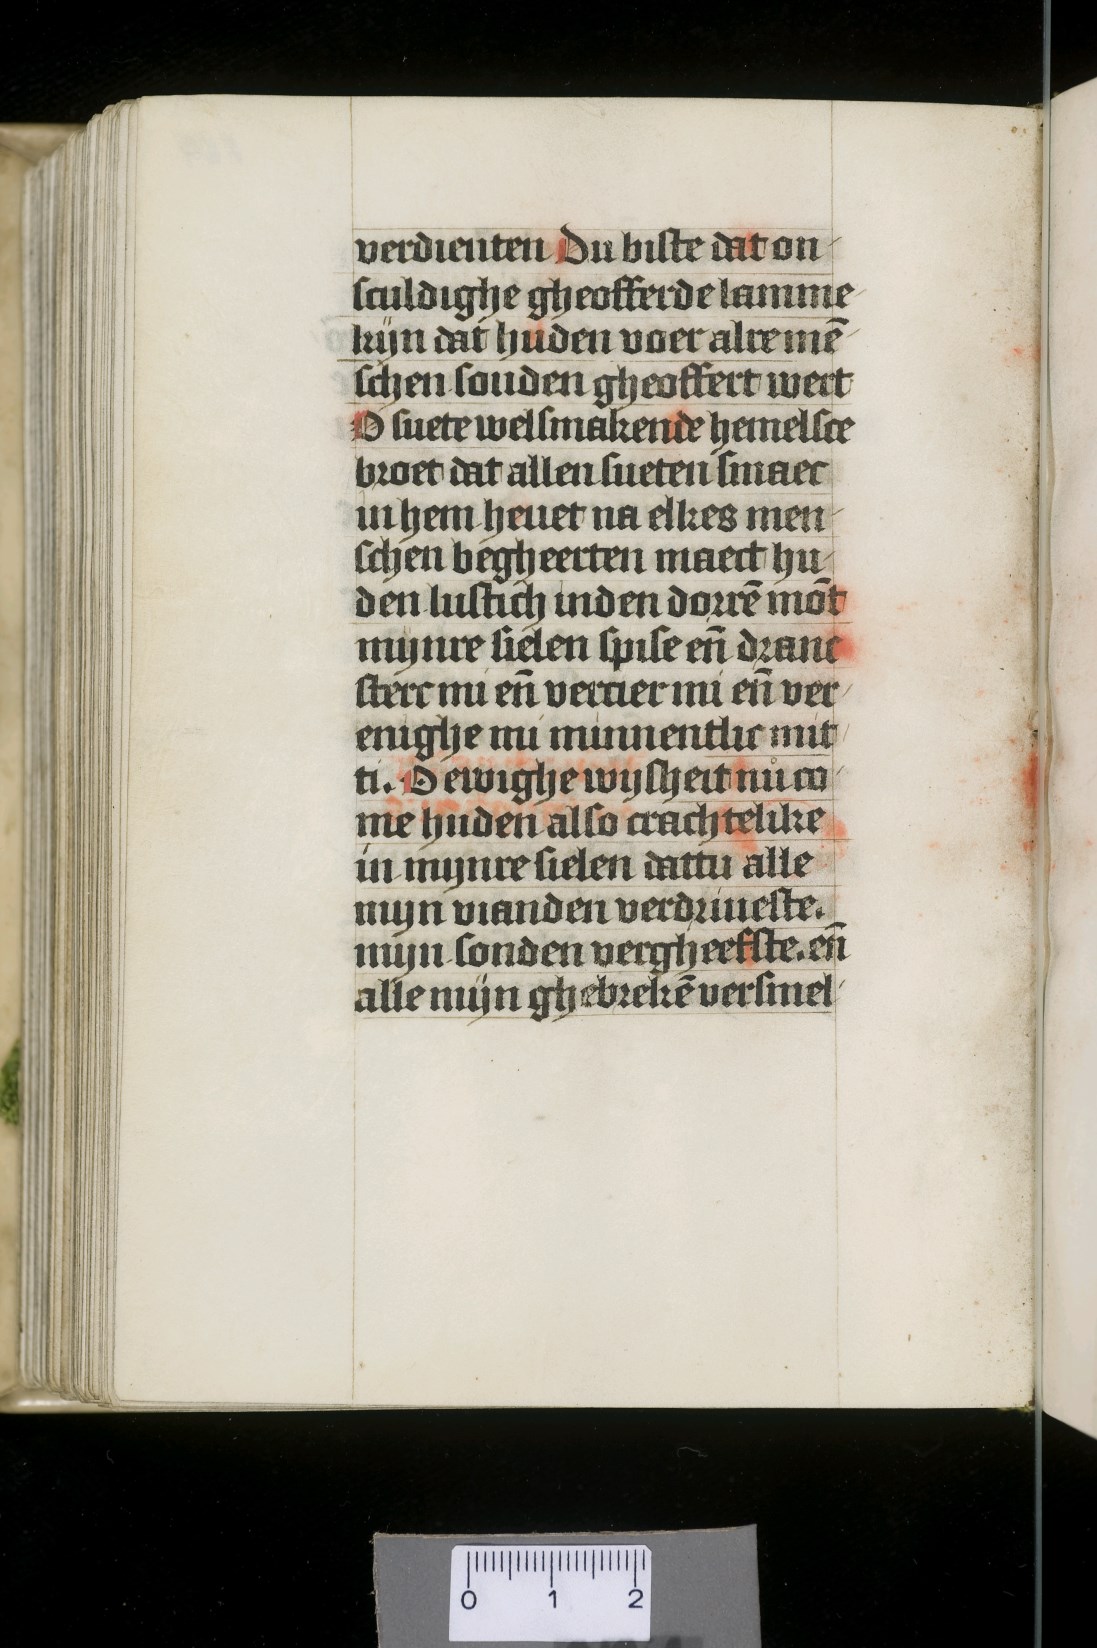 verdienten Du biste dat on-
sculdighe gheofferde lamme-
kijn dat huden voer alre mē-
schen souden gheoffert wert
O suete welsmakende hemelsce
broet dat allen sueten smaec
in hem heuet na elkes men-
schen begheerten maect hu-
den lustich inden dorrē mōt
mijnre sielen spise en̄ dranc
sterc mi en̄ vercier mi en̄ ver-
enighe mi minnentlic mit
ti. O ewighe wijsheit nu co-
me huden also crachtelike
in mijnre sielen dattu alle
mijn vianden verdriueste.
mijn sonden vergheefste. en̄
alle mijn ghebrekē versmel-
0 1 2